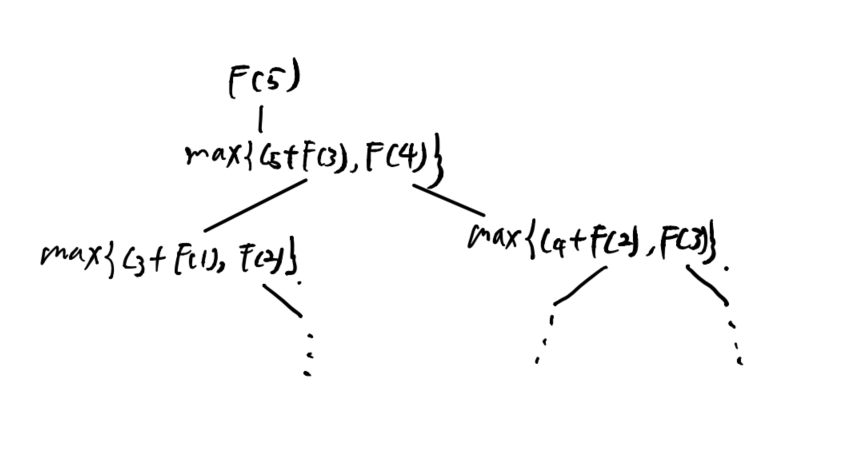 F(5)
max{C5+F(3), F(4)}
max{C3+F(1), F(2)}.
max{C4+F(2), F(3)}.